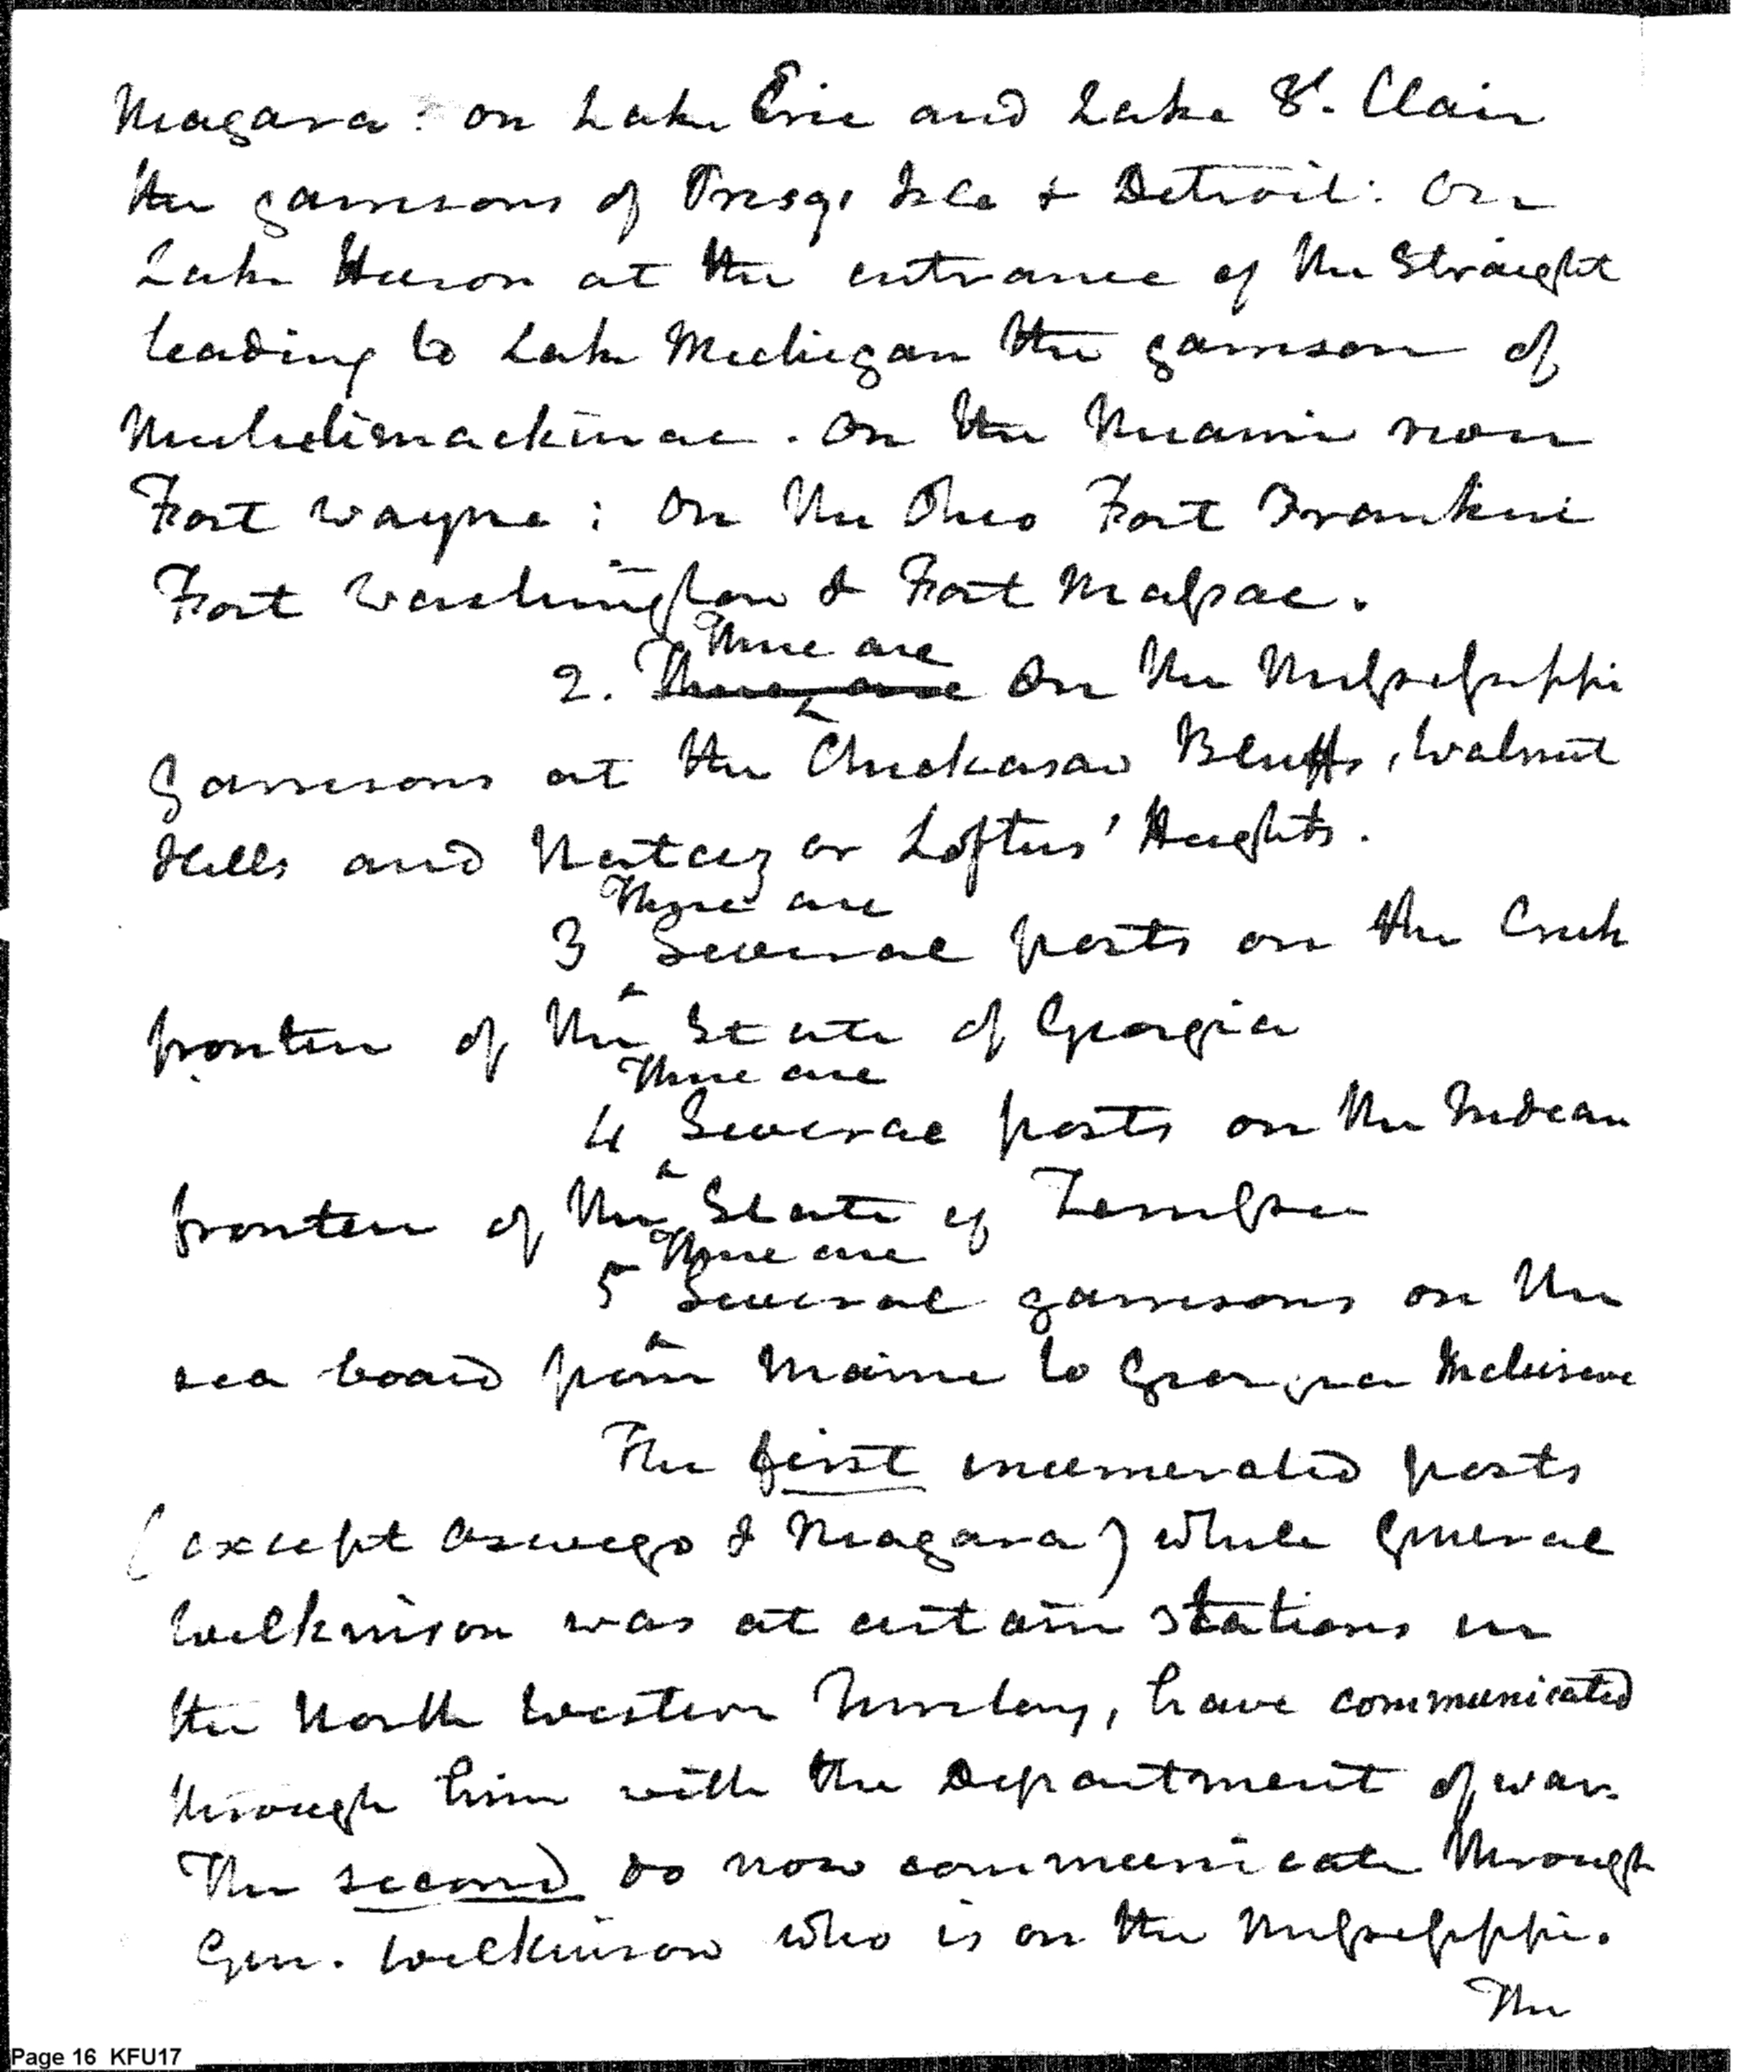 Niagara: on Lake Erie and Lake St. Clair
the garrisons of Presq, Isle & Detroit: On
Lake Huron at the entrance of the Straight
leading to Lake Michigan the garrison of
Michilimackinac. On the Miami now
Fort Wayne: On the Ohio Fort Franklin
Fort Washington & Fort Massac.
There are
2. There are On the Mississippi
garrisons at the Chickasaw Bluffs, Walnut
Hills and Natcez or Loftus' Heights.
There are
3 Several posts on the Creek
frontier of the State of Georgia
There are
4 Several posts on the Indian
frontier of the State of Tennessee
There are
5 Several garrisons on the
sea board from Maine to Georgia inclusive
The first enumerated posts
(except Oswego & Niagara) while General
Wilkinson was at certain stations in
the North Western Territory, have communicated
through him with the Department of war.
The second do now communicate through
Gen. Wilkinson who is on the Mississippi.
The
Page 16 KFU17